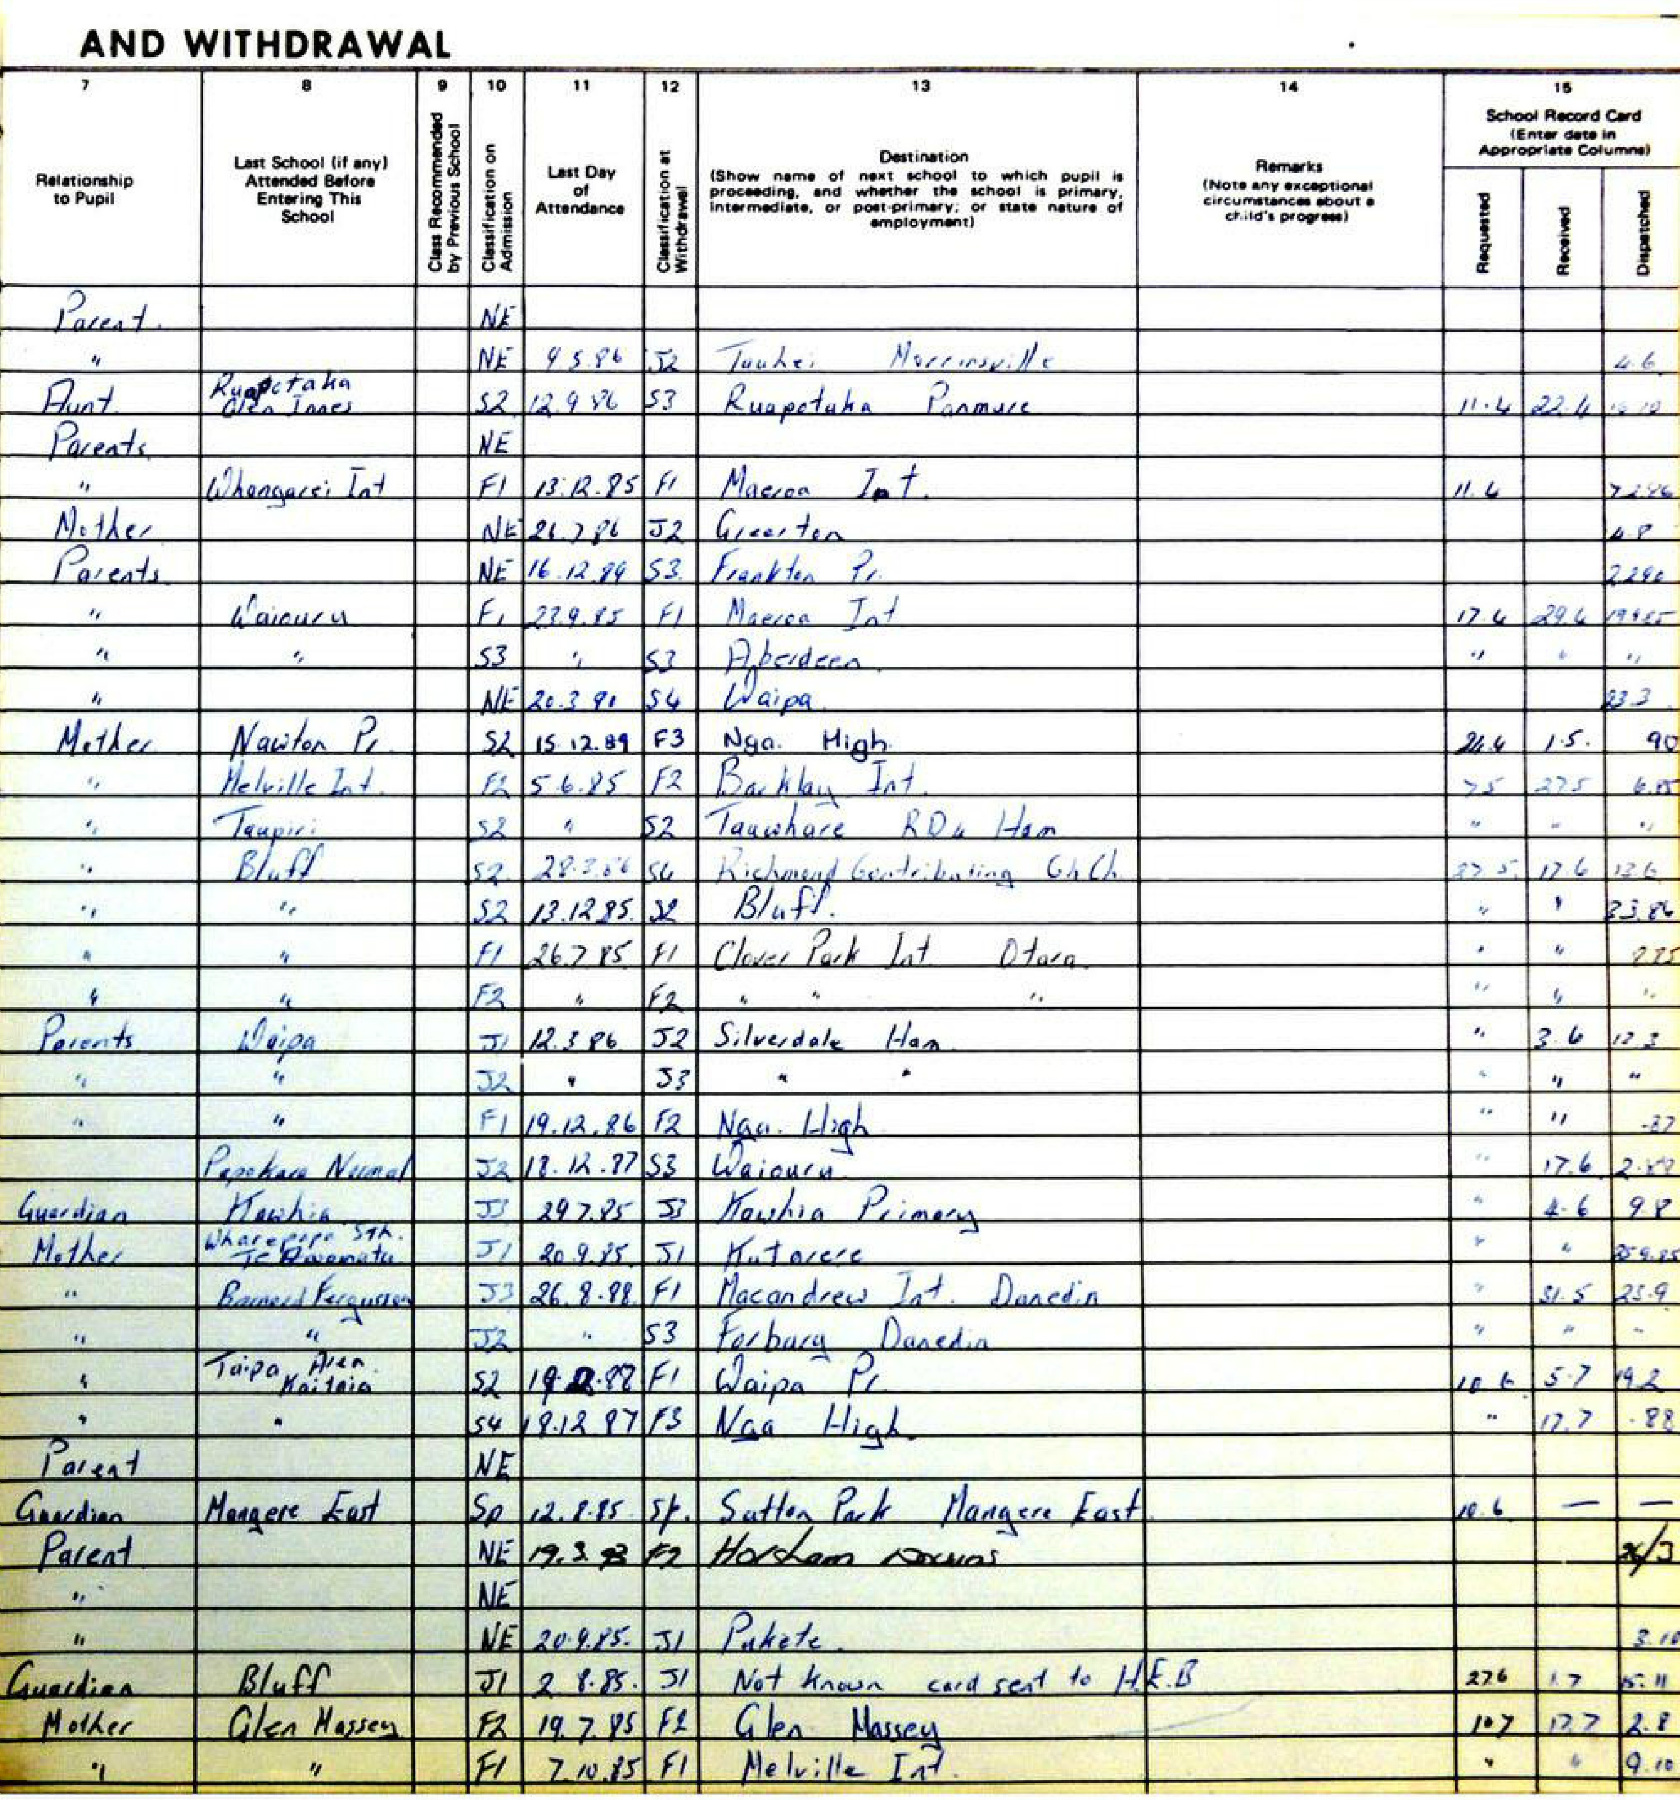 AND WITHDRAWAL
7 8 9 10 11 12 13 14 15
Relationship to Pupil
Last School (if any) Attended Before Entering This School
Class Recommended by Previous School
Classification on Admission
Last Day of Attendance
Classification at Withdrawal
Destination
(Show name of next school to which pupil is proceeding, and whether the school is primary, intermediate, or post-primary; or state nature of employment)
Remarks
(Note any exceptional circumstances about a child's progress)
School Record Card
(Enter date in Appropriate Columns)
Requested Received Dispatched
Parent. NE
" NE 9.5.86 J2 Tauhei Morrinsville 4.6
Aunt Ruapotaka Glen Innes S2 12.9 86 S3 Ruapotaka Panmure 11.4 22.4
Parents NE
" Whangarei Int F1 13.12.85 F1 Maeroa Int. 11.4
Mother NE 26.7 86 J2 Greerton 4.8
Parents NE 16.12.89 S3. Frankton Pr. 2290
" Waiouru F1 23.9.85 F1 Maeroa Int 17.4 29.4
" " S3 " S3 Aberdeen " " "
" NE 20.3.90 S4 Waipa 23.3
Mother Nawton Pr. S2 15.12.89 F3 Nga. High 24.4 1.5. 90
" Melville Int. F2 5.6.85 F2 Barklay Int. 7.5 27.5 6.85
" Taupiri S2 " S2 Tauwhare RD4 Ham " " "
" Bluff S2 28.3.86 S4 Richmond Contributing Ch.Ch. 27.5. 17.6 12.6
" " S2 13.12.85. S2 Bluff. " "
" " F1 26.7.85 F1 Clover Park Int Otara " "
" " F2 " F2 " " " " " "
Parents Waipa J1 12.3.86 J2 Silverdale Ham " 3.6 12 3
" " J2 " J3 " " " " "
" " F1 19.12.86 F2 Nga. High " " -87
Papakura Normal J2 18.12.87 S3 Waiouru " 17.6
Guardian Kawhia J3 29.7.85 J3 Kawhia Primary " 4.6 9.8
Mother Wharepapa Sth. J1 20.9.85. J1 Kutarere " "
" Barnard Fergusson J3 26.8.88 F1 Macandrew Int. Danedin " 31.5 23.9
" " J2 " S3 Forbury Danedin " " "
" Taipa Area Kaitaia S2 F1 Waipa Pr. 10.6 5.7 19.2
" " S4 18.12.87 F3 Nga High. " 17.7 .88
Parent NE
Guardian Mangere East Sp 12.8.85. Sp. Sutton Park Mangere East 10.6 — —
Parent NE 19.3.93 F2 Horsham Downs
" NE
" NE 20.9.85. J1 Pukete. 3.10
Guardian Bluff J1 2.8.85. J1 Not known card sent to H.E.B 27.6 1.7 15.11
Mother Glen Massey F2 19.7.85 F2 Glen Massey 10.7 17.7 2.8
" " F1 7.10.85 F1 Melville Int. " " 9.10